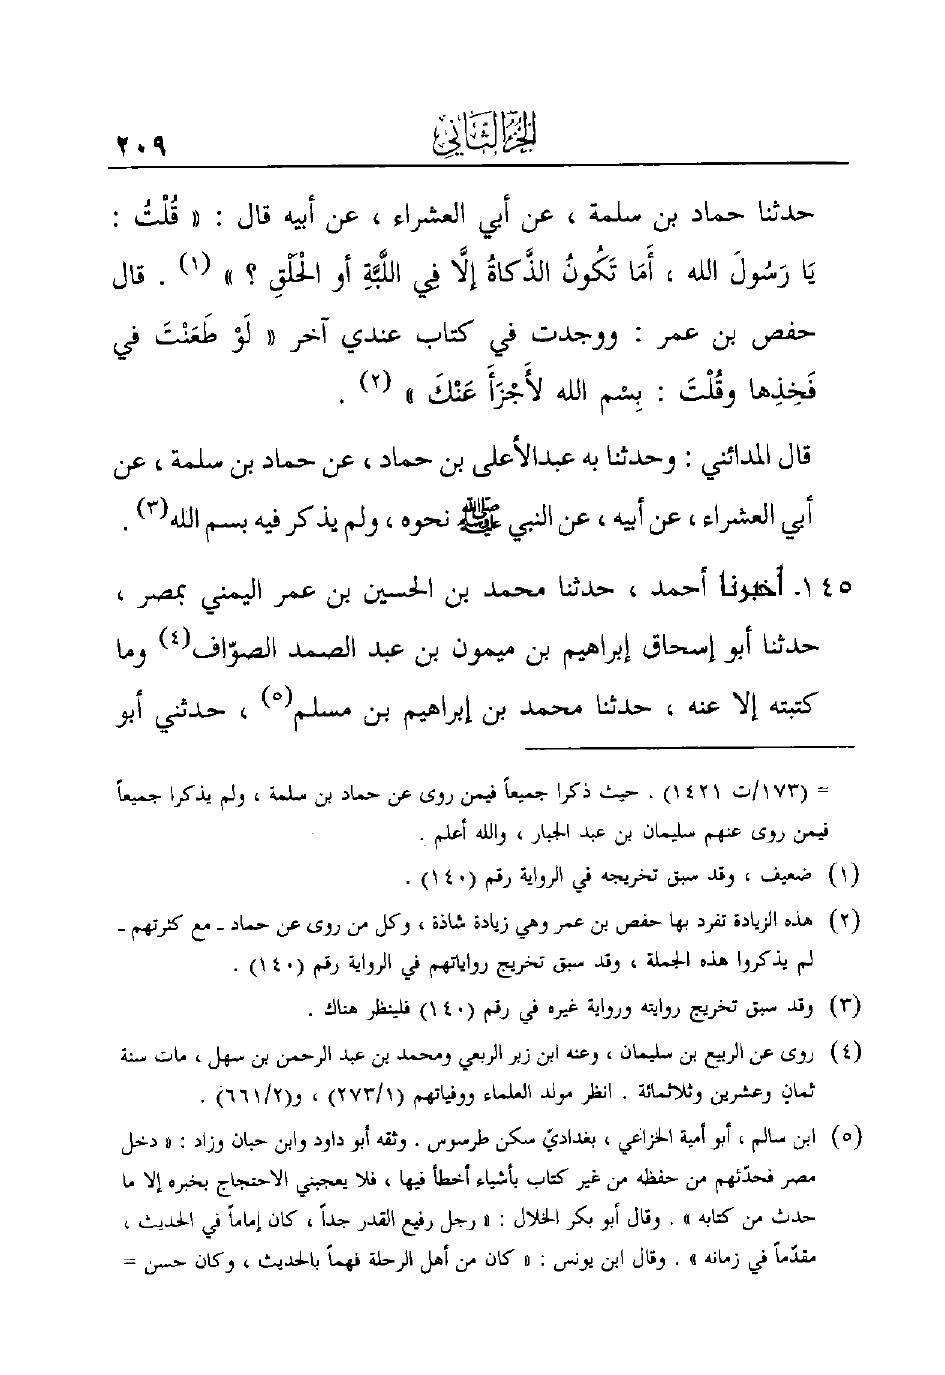 الجزء الثاني ٢٠٩
حدثنا حماد بن سلمة ، عن أبي العشراء ، عن أبيه قال : « قُلْتُ :
يَا رَسُولَ الله ، أَمَا تَكُونُ الذَّكاةُ إلَّا فِي اللَّبَّةِ أو الْحَلْقِ ؟ » (١) . قال
حفص بن عمر : ووجدت في كتاب عندي آخر « لَوْ طَعَنْتَ في
فَخِذِها وقُلْتَ : بِسْمِ الله لأَجْزَأَ عَنْكَ » (٢) .
قال المدائني : وحدثنا به عبدالأعلى بن حماد ، عن حماد بن سلمة ، عن
أبي العشراء ، عن أبيه ، عن النبي ﷺ نحوه ، ولم يذكر فيه بسم الله(٣) .
١٤٥. أخبرنا أحمد ، حدثنا محمد بن الحسين بن عمر اليمني بمصر ،
حدثنا أبو إسحاق إبراهيم بن ميمون بن عبد الصمد الصوّاف(٤) وما
كتبته إلا عنه ، حدثنا محمد بن إبراهيم بن مسلم(٥) ، حدثني أبو
= (١٧٣/ت ١٤٢١) . حيث ذكرا جميعاً فيمن روى عن حماد بن سلمة ، ولم يذكرا جميعاً
فيمن روى عنهم سليمان بن عبد الجبار ، والله أعلم .
(١) ضعيف ، وقد سبق تخريجه في الرواية رقم (١٤٠) .
(٢) هذه الزيادة تفرد بها حفص بن عمر وهي زيادة شاذة ، وكل من روى عن حماد ـ مع كثرتهم ـ
لم يذكروا هذه الجملة ، وقد سبق تخريج رواياتهم في الرواية رقم (١٤٠) .
(٣) وقد سبق تخريج روايته ورواية غيره في رقم (١٤٠) فلينظر هناك .
(٤) روى عن الربيع بن سليمان ، وعنه ابن زبر الربعي ومحمد بن عبد الرحمن بن سهل ، مات سنة
ثمانٍ وعشرين وثلاثمائة . انظر مولد العلماء ووفياتهم (٢٧٣/١) ، و(٦٦١/٢) .
(٥) ابن سالم ، أبو أمية الخزاعي ، بغداديّ سكن طرسوس . وثقه أبو داود وابن حبان وزاد : « دخل
مصر فحدّثهم من حفظه من غير كتاب بأشياء أخطأ فيها ، فلا يعجبني الاحتجاج بخبره إلا ما
حدث من كتابه » . وقال أبو بكر الخلال : « رجل رفيع القدر جداً ، كان إماماً في الحديث ،
مقدّماً في زمانه » . وقال ابن يونس : « كان من أهل الرحلة فهماً بالحديث ، وكان حسن =